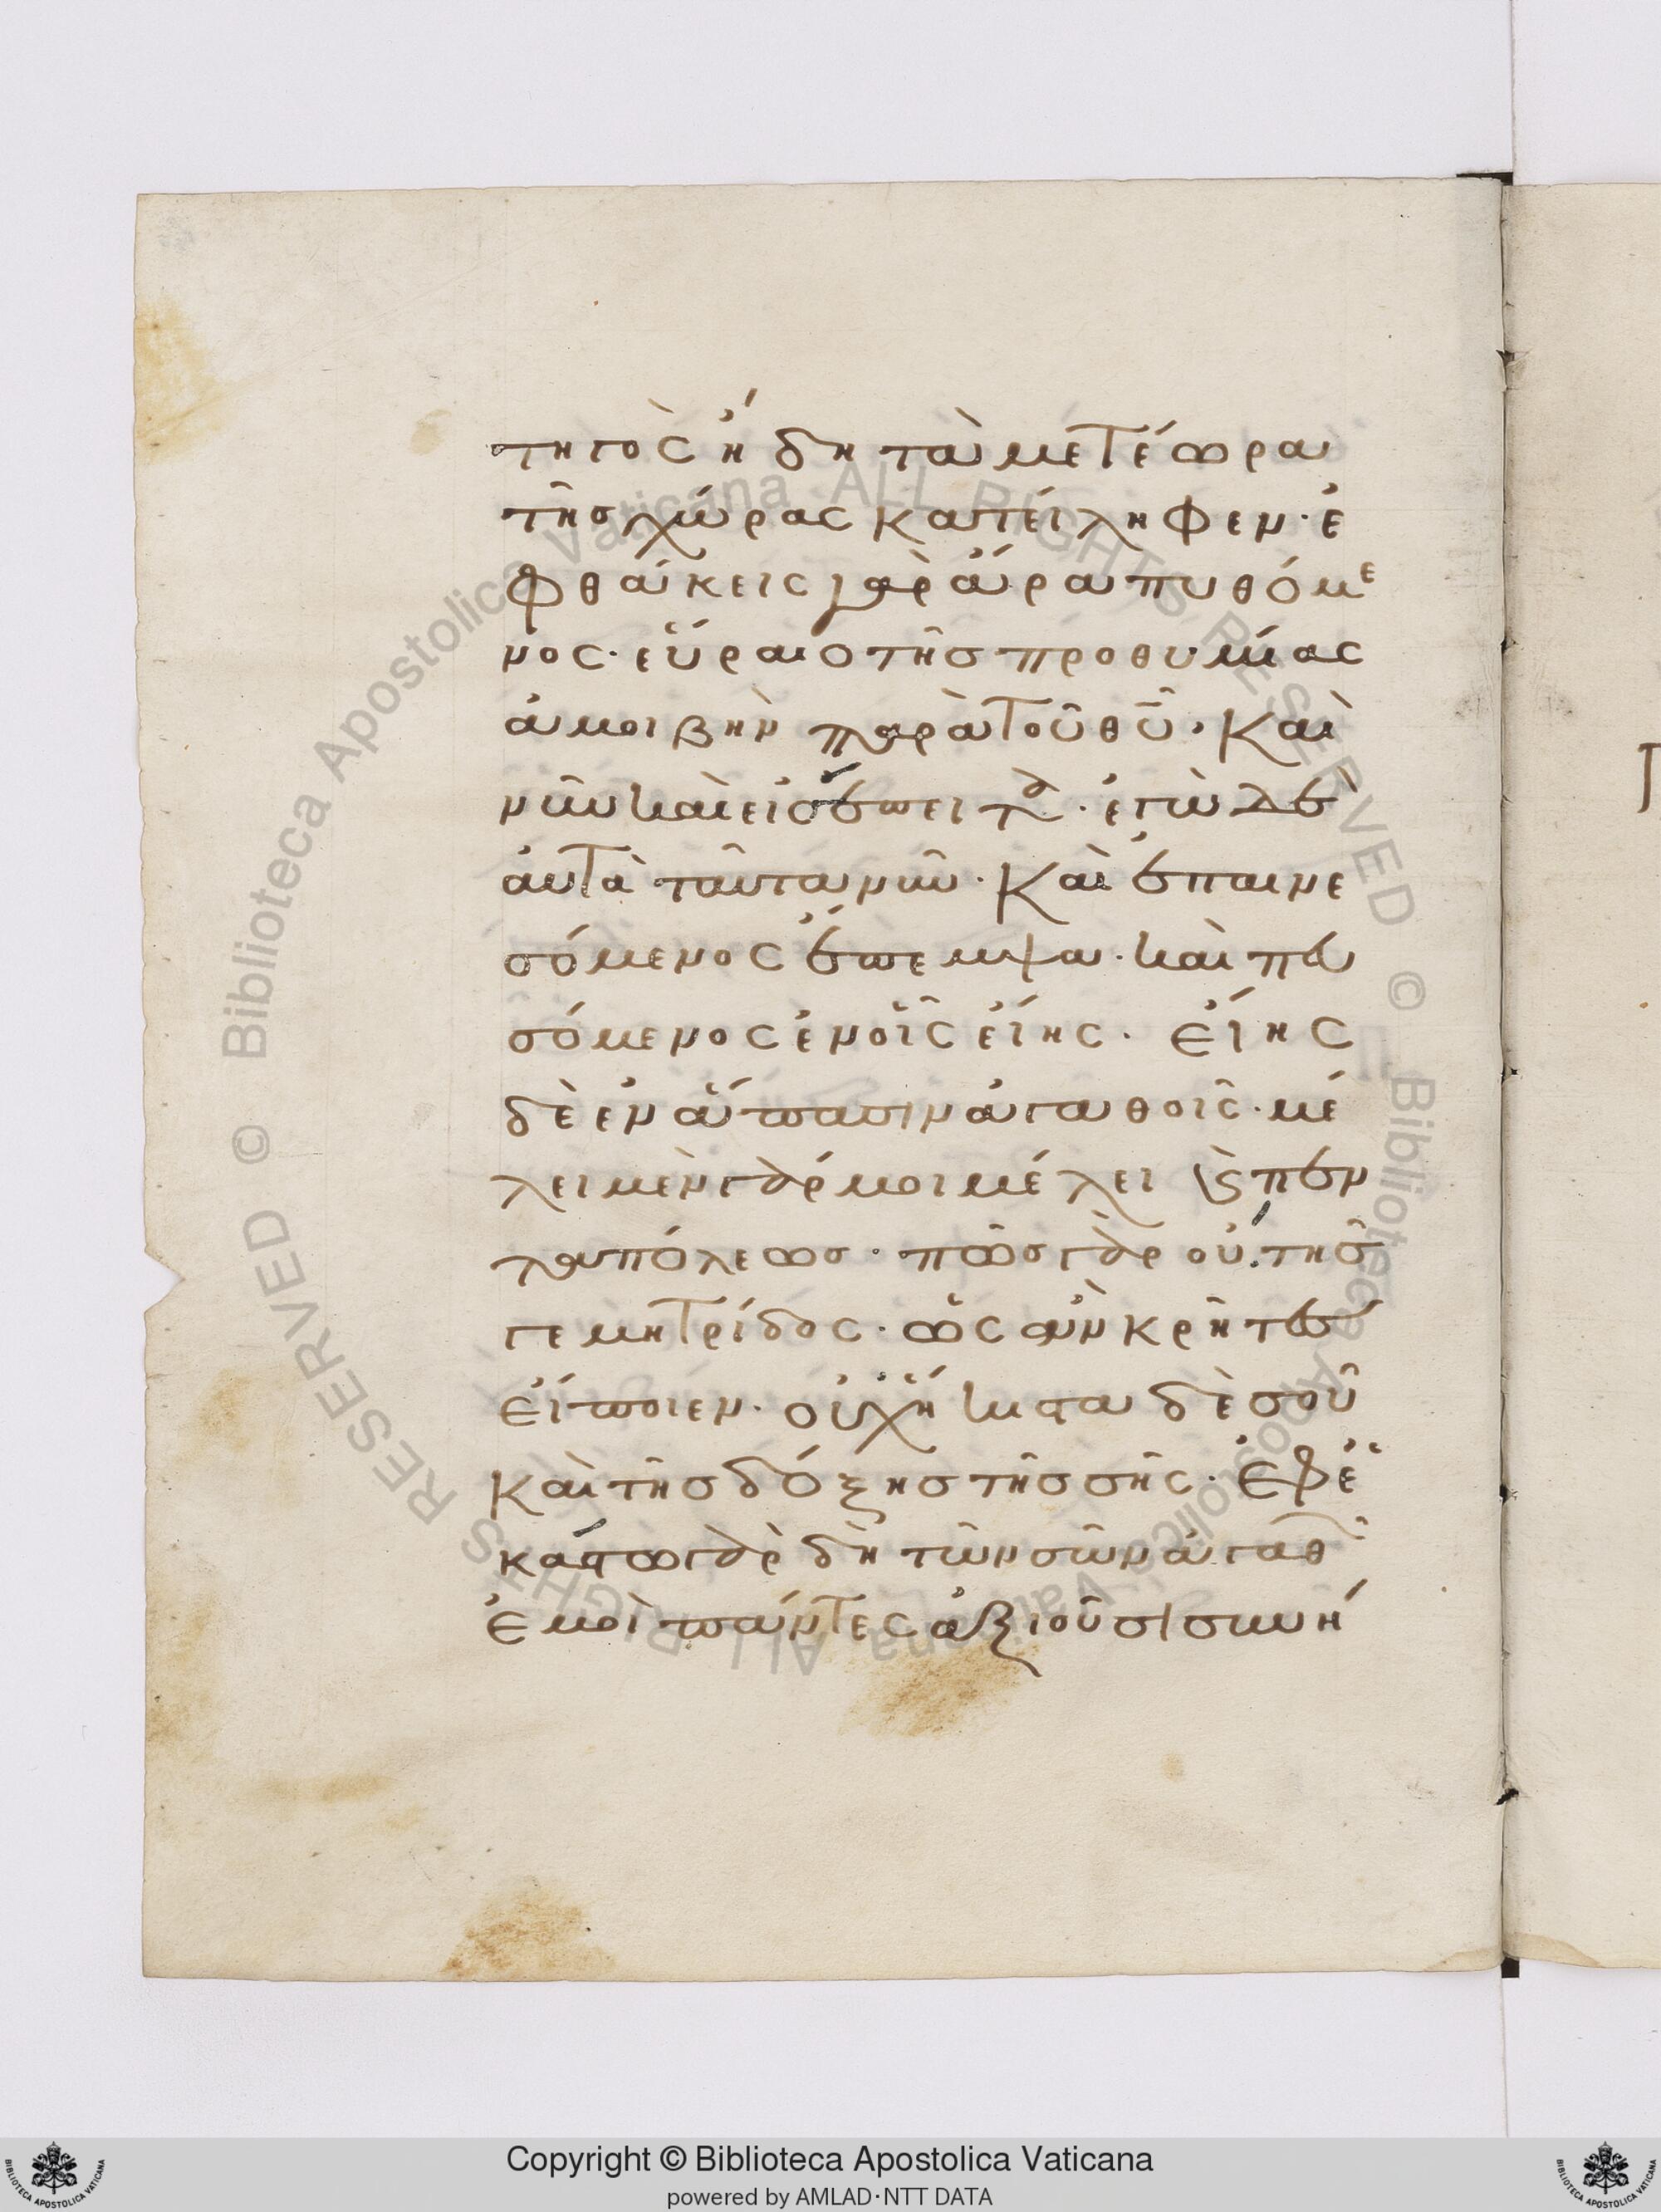 τηγὸς ἤδη τὰ μετέωρα
τῆς χώρας κατείληφεν· ἐ
φθάκεις γὰρ ἄρα πυθόμε
νος· εὕραιο τῆς προθυμίας
ἀμοιβὴν παρὰ τοῦ θῦ· καὶ
νῦν καὶ εἰσέπειτα· ἐγὼ δὲ
αὐτὰ ταῦτα νῦν· καὶ ἐπαινε
σόμενος ἔπεμψα· καὶ πευ
σόμενος ἐν οἷς εἴης· εἴης
δὲ ἐν ἅπασιν ἀγαθοῖς· μέ
λει μὲν γάρ μοι μέλει καὶ πεν
ταπόλεως· πῶς γὰρ οὐ, τῆς
γε μητρίδος· ὡς ἂν κρῆτες
εἴποιεν· οὐχ ἥκιστα δὲ σοῦ
καὶ τῆς δόξης τῆς σῆς· ἐφ' ἑ
κάστω γὰρ δὴ τῶν σῶν ἀγαθῶ
ἐμοὶ πάντες ἀξιοῦσι συνή
Copyright © Biblioteca Apostolica Vaticana
powered by AMLAD·NTT DATA